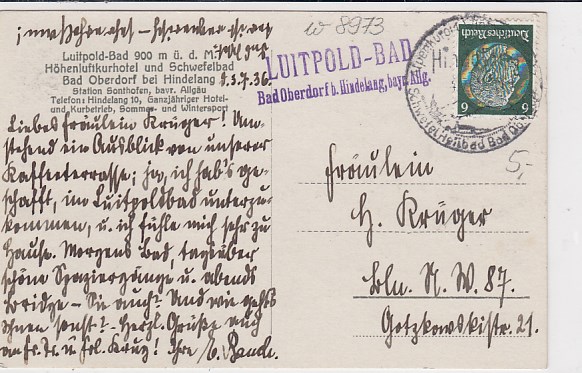 w 8973
Luitpold-Bad 900 m ü. d. M.
Höhenluftkurhotel und Schwefelbad
Bad Oberdorf bei Hindelang
Station Sonthofen, bayr. Allgäu
Telefon: Hindelang 10, Ganzjähriger Hotel-
und Kurbetrieb, Sommer- und Wintersport
3.7.36.
LUITPOLD-BAD
Bad Oberdorf b. Hindelang, bayr. Allg.
Deutsches Reich
6 6
5,-
Liebes Fräulein Krüger! Um-
stehend ein Ausblick von unserer
Kaffeeterrasse; ja, ich hab's ge-
schafft, im Luitpoldbad unterzu-
kommen, u. ich fühle mich sehr zu
Hause. Morgens Bad, tagsüber
schöne Spaziergänge u. abends
Bridge – Sie auch? Und wie geht's
Ihnen sonst? – Herzl. Grüße auch
an Fr. Tr. u. Frl. Kruz! Ihre
Fräulein
H. Krüger
Bln. N.W. 87.
Gotzkowskistr. 21.